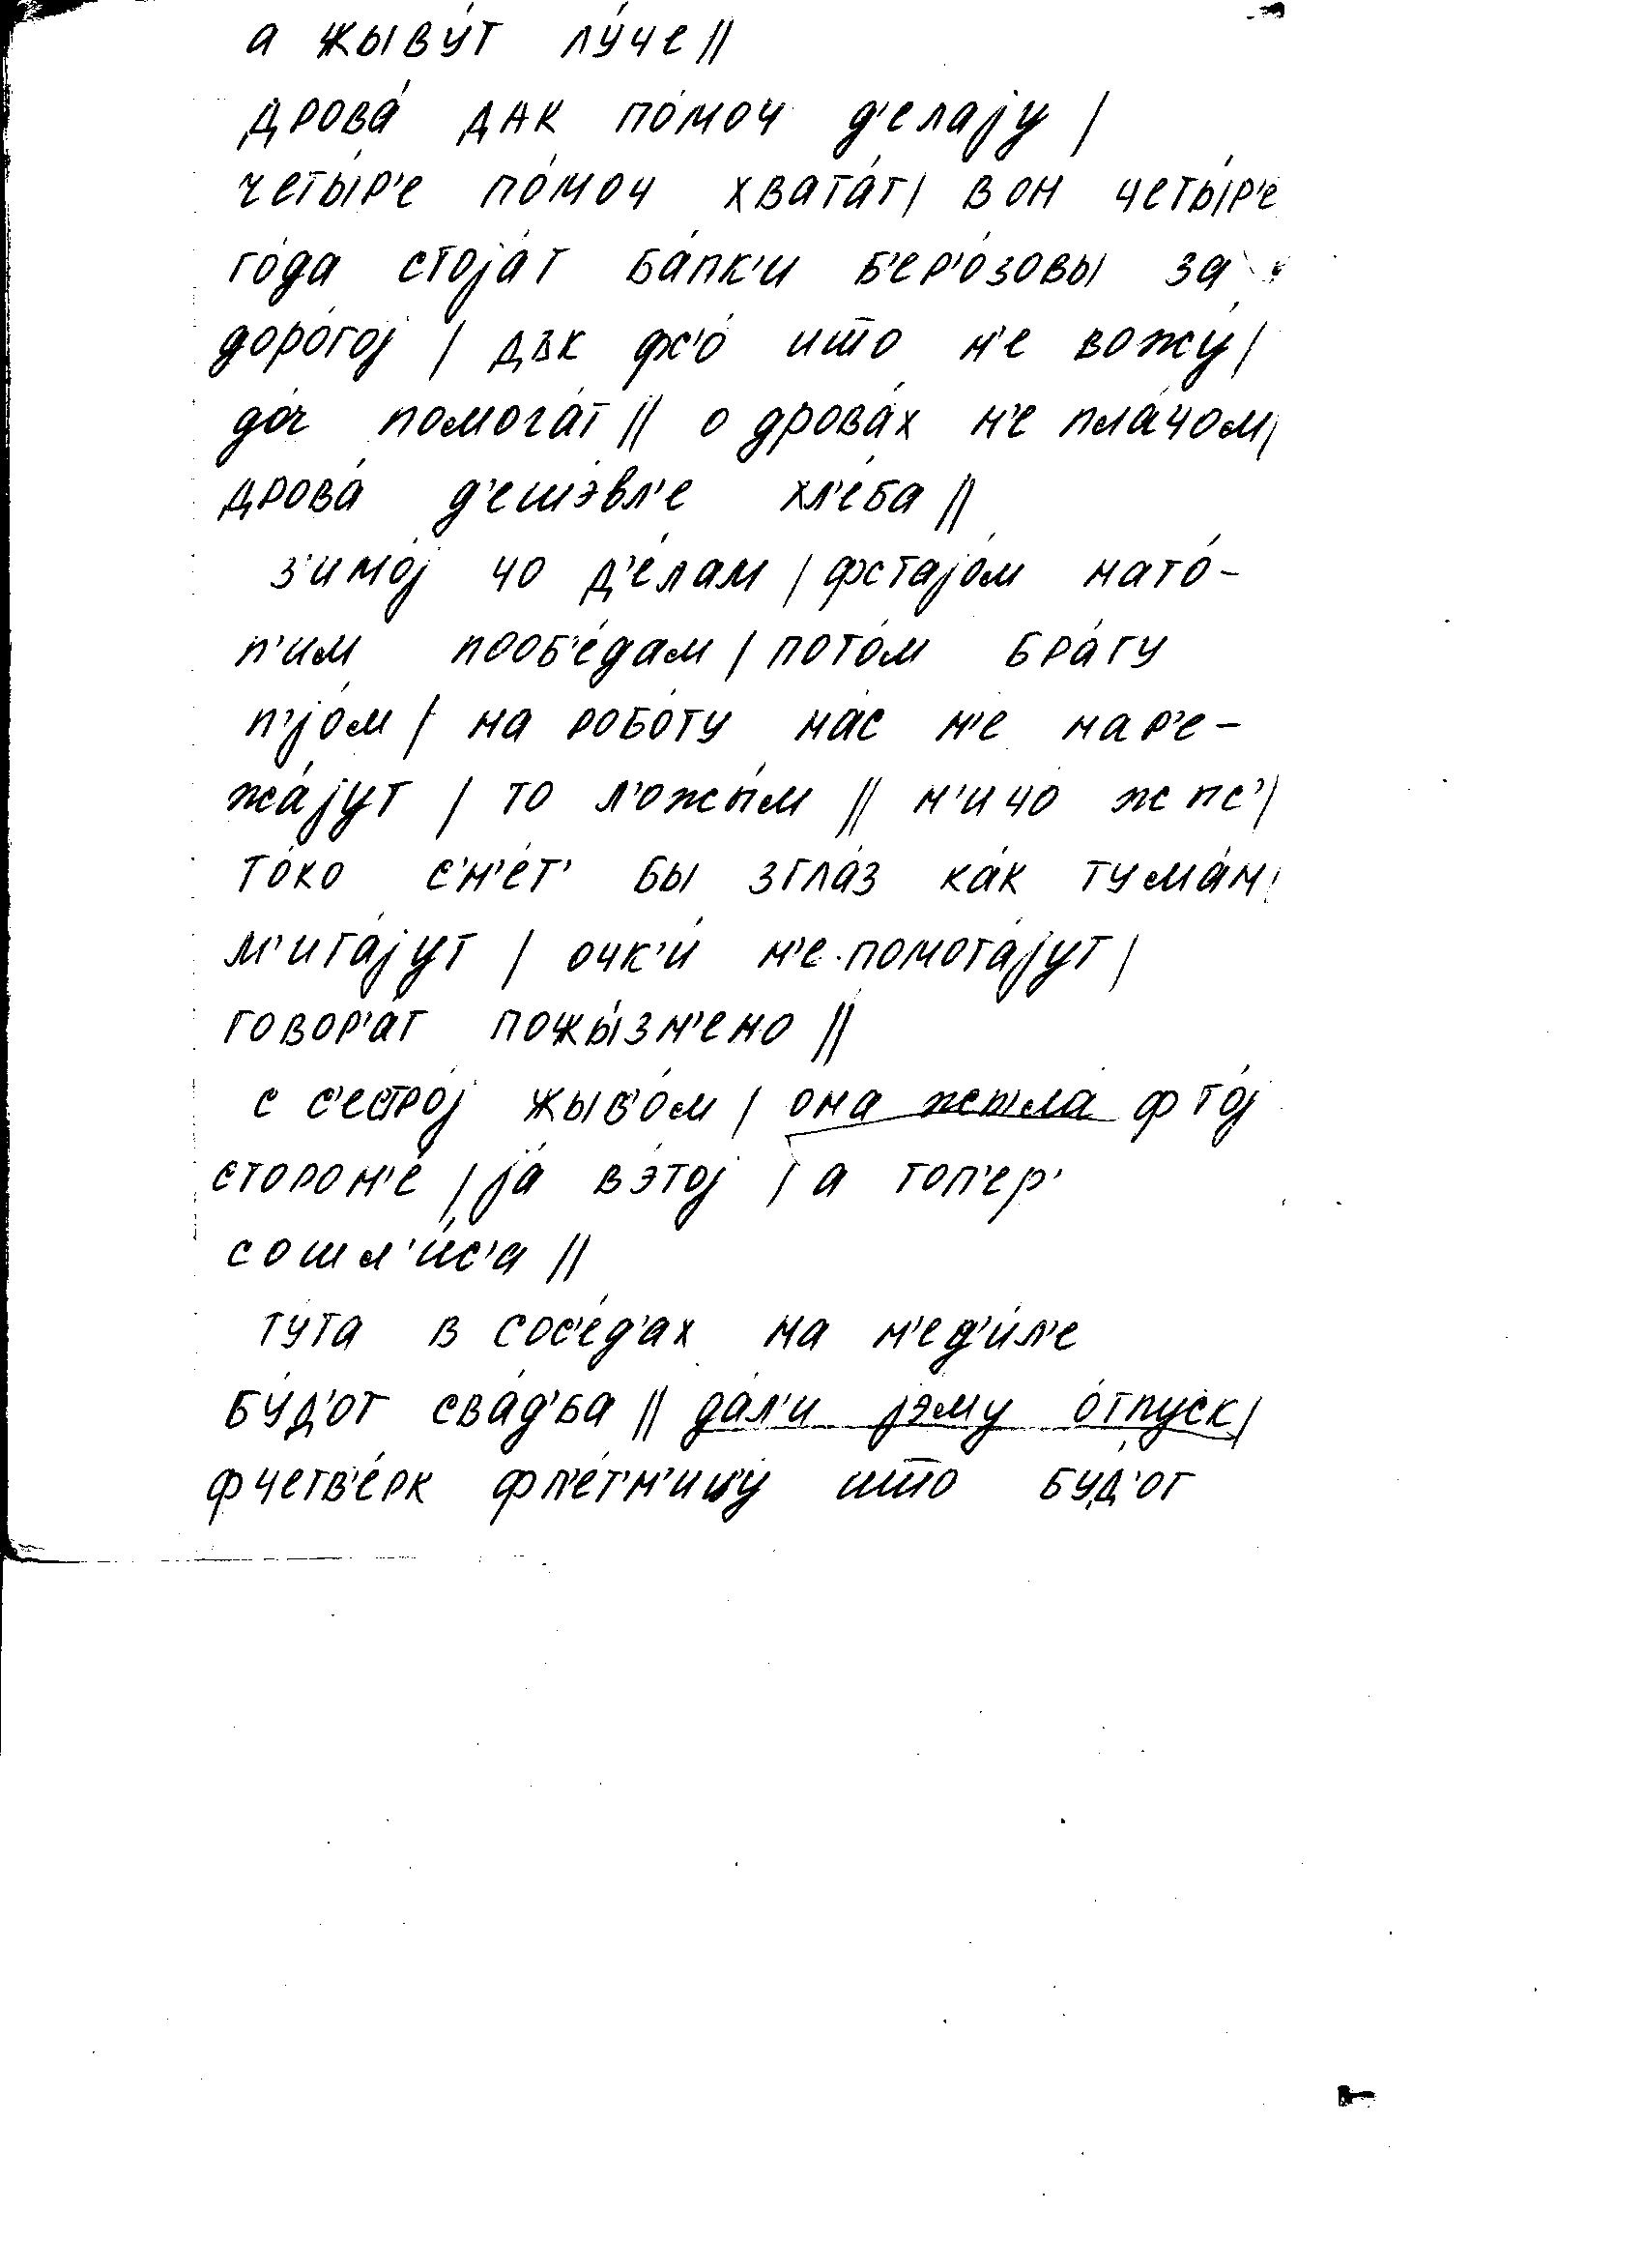 а жыву́т лу́че ||
дрова́ дак по́моч д'е́лају |
четы́р'е по́моч хвата́т | вон четы́р'е
го́да стоја́т ба́пк'и б'ер'о́зовы за
доро́гој | дък фс'о́ што н'е вожу́ |
до́ч помога́т || о дрова́х н'е пла́чом |
дрова́ д'ешэ́вл'е хл'е́ба ||
з'имо́ј чо д'е́лам | фстајо́м нато́-
п'им пооб'е́дам | пото́м бра́гу
п'јо́м | на робо́ту на́с н'е нар'е-
жа́јут | то л'ожы́м || н'ичо́
то́ко с'н'е́т' бы згла́з ка́к тума́н
м'ига́јут | очк'и́ н'е помога́јут |
говор'а́т пожы́зн'ено ||
с с'естро́ј жыв'о́м | она жыла́ ф то́ј
сторон'е́ | ја́ в э́тој | а топ'ер'
сошл'и́с'а ||
ту́та в сос'е́д'ах на н'ед'и́л'е
бу́д'от сва́д'ба || да́л'и јэму о́тпуск |
ф четв'е́рк ф п'е́т'н'ицу што бу́д'от